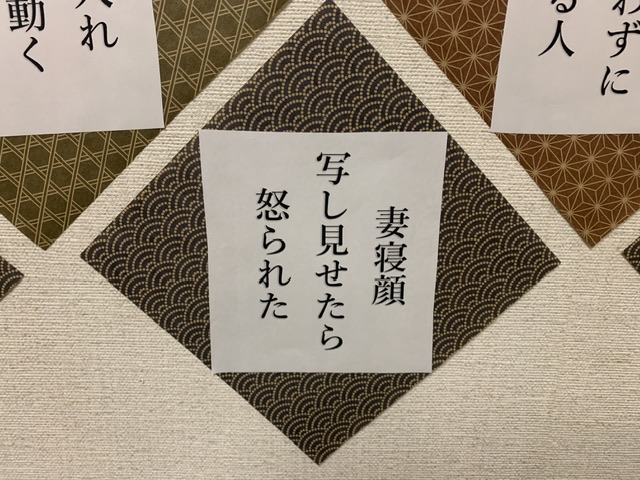 妻寝顔
写し見せたら
怒られた
わずに
る人
入れ
動く